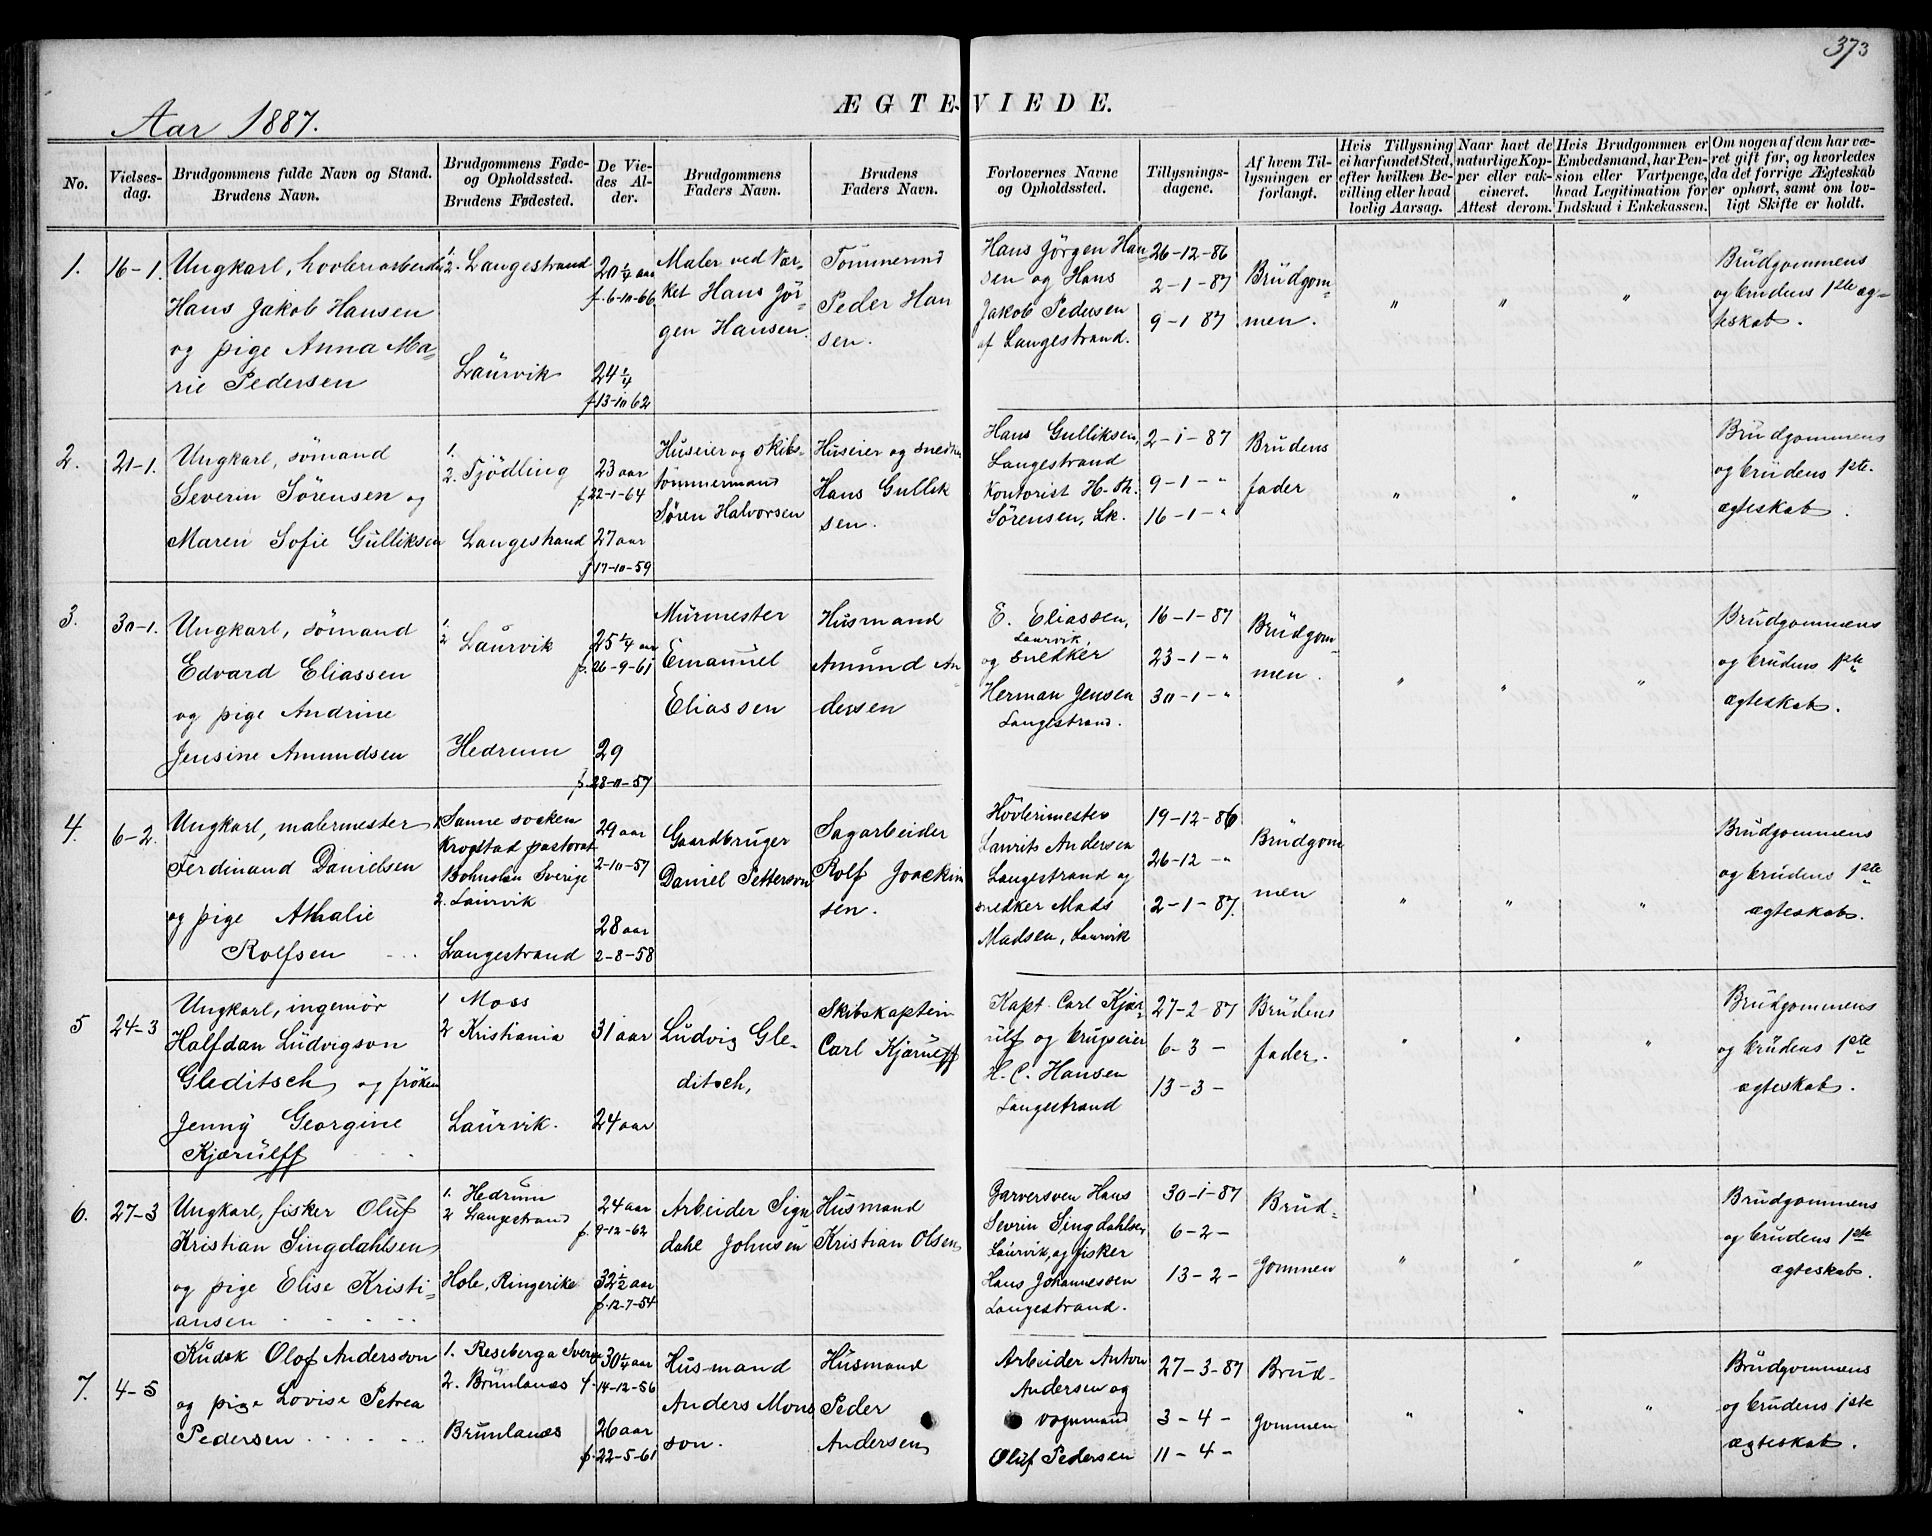 373
ÆGTEVIEDE.
Aar 1887.
No.
Vielses-
dag.
Brudgommens fulde Navn og Stand.
Brudens Navn.
Brudgommens Føde-
og Opholdssted.
Brudens Fødested.
De Vie-
des Al-
der.
Brudgommens
Faders Navn.
Brudens
Faders Navn.
Forlovernes Navne
og Opholdssted.
Tillysnings-
dagene.
Af hvem Til-
lysningen er
forlangt.
Hvis Tillysning
ei har fundet Sted,
efter hvilken Be-
villing eller hvad
lovlig Aarsag.
Naar havt de
naturlige Kop-
per eller vak-
cineret.
Attest derom.
Hvis Brudgommen er
Embedsmand, har Pen-
sion eller Vartpenge,
hvad Legitimation for
Indskud i Enkekassen.
Om nogen af dem har væ-
ret gift før, og hvorledes
da det forrige Ægteskab
er ophørt, samt om lov-
ligt Skifte er holdt.
1.
16-1.
Ungkarl, hovleriarbeider
Hans Jakob Hansen
og pige Anna Ma-
rie Pedersen
1.
2. Langestrand
Laurvik
20 1/4 aar
f. 6-10-66
24 1/4
f. 13-10 62
Maler ved Vær-
ket Hans Jør-
gen Hansen.
Tømmermd
Peder Han
sen.
Hans Jörgen Han-
sen og Hans
Jakob Pedersen
af Langestrand.
26-12-86
2-1-87
9-1 87
Brudgom-
men.
"
"
"
Brudgommens
og brudens 1ste æg-
teskab.
2.
21-1.
Ungkarl, sömand
Severin Sörensen og
Maren Sofie Gulliksen
1.
2. Tjödling
Langestrand
23 aar
f. 22-1-64
27 aar
f 17-10-59
Huseier og skibs-
tömmermand
Sören Halvorsen
Huseier og snedker
Hans Gullik
sen.
Hans Gulliksen,
Langestrand
Kontorist H. Th.
Sörensen, Lk.
2-1-87
9-1-"
16-1-"
Brudens
fader
"
"
"
Brudgommens
og brudens 1ste
ægteskab.
3.
30-1.
Ungkarl, sömand
Edvard Eliassen
og pige Andrine
Jensine Amundsen
1.
2 Laurvik
Hedrum
25 1/4 aar
f. 26-9-61
29
f. 28-11-57
Murmester
Emanuel
Eliassen
Husmand
Amund An-
dersen
E. Eliassen,
Laurvik,
og snedker
Herman Jensen
Langestrand.
16-1-87
23-1-"
30-1-"
Brudgom-
men.
"
"
"
Brudgommens
og brudens 1ste
ægteskab.
4.
6-2.
Ungkarl, malermester
Ferdinand Danielsen
og pige Athalie
Rolfsen
1. Sanne socken
Krogstad pastorat
Bohuslen Sverige
2. Laurvik
Langestrand
29 aar
2-10-57
28 aar
2-8-58
Gaardbruger
Daniel Petterson
Sagarbeider
Rolf Joackim
sen.
Hövlerimester
Laurits Andersen
Langestrand og
snedker Mads
Madsen, Laurvik
19-12-86
26-12-"
2-1-87.
Brudgom
men
"
"
"
Brudgommens
og brudens 1ste
ægteskab.
5
24-3
Ungkarl, ingeniör
Halfdan Ludvigson
Gleditsch og fröken
Jenny Georgine
Kjærulff
1 Moss
2 Kristiania
Laurvik.
31 aar
24 aar
Ludvig Gle-
ditsch,
Skibskaptein
Carl Kjærulff
Kapt. Carl Kjær-
ulf og brugseier
H. C. Hansen
Langestrand
27-2-87
6-3-
13-3-
Brudens
fader.
"
"
"
Brudgommens
og brudens 1ste
ægteskab.
6.
27-3
Ungkarl, fisker Oluf
Kristian Singdahlsen
og pige Elise Kristi-
ansen
1. Hedrum
2 Langestrand
Hole, Ringerike
24 aar
f. 9-12-62
32 1/2 aar
f. 12-7-54
Arbeider Sign
dahl Johnsen
Husmand
Kristian Olsen
Garversven Hans
Sevrin Singdahlsen
Laurvik, og fisker
Hans Johannessen
Langestrand.
30-1-87
6-2-
13-2-
Brud-
gommen
"
"
"
Brudgommens
og brudens 1ste
ægteskab.
7.
4-5
Kudsk Olof Andersson
og pige Lovise Petrea
Pedersen
1. Reseberga Sverig
2. Brunlanæs
Brunlanæs
30 1/4 aar
f. 14-12-56
26 aar
f. 22-5-61
Husmand
Anders Mons
son.
Husmand
Peder
Andersen
Arbeider Anton
Andersen og
vognmand
Oluf Pedersen
27-3-87
3-4-
11-4-
Brud-
gommen
"
"
"
Brudgommens
og brudens 1ste
ægteskab.